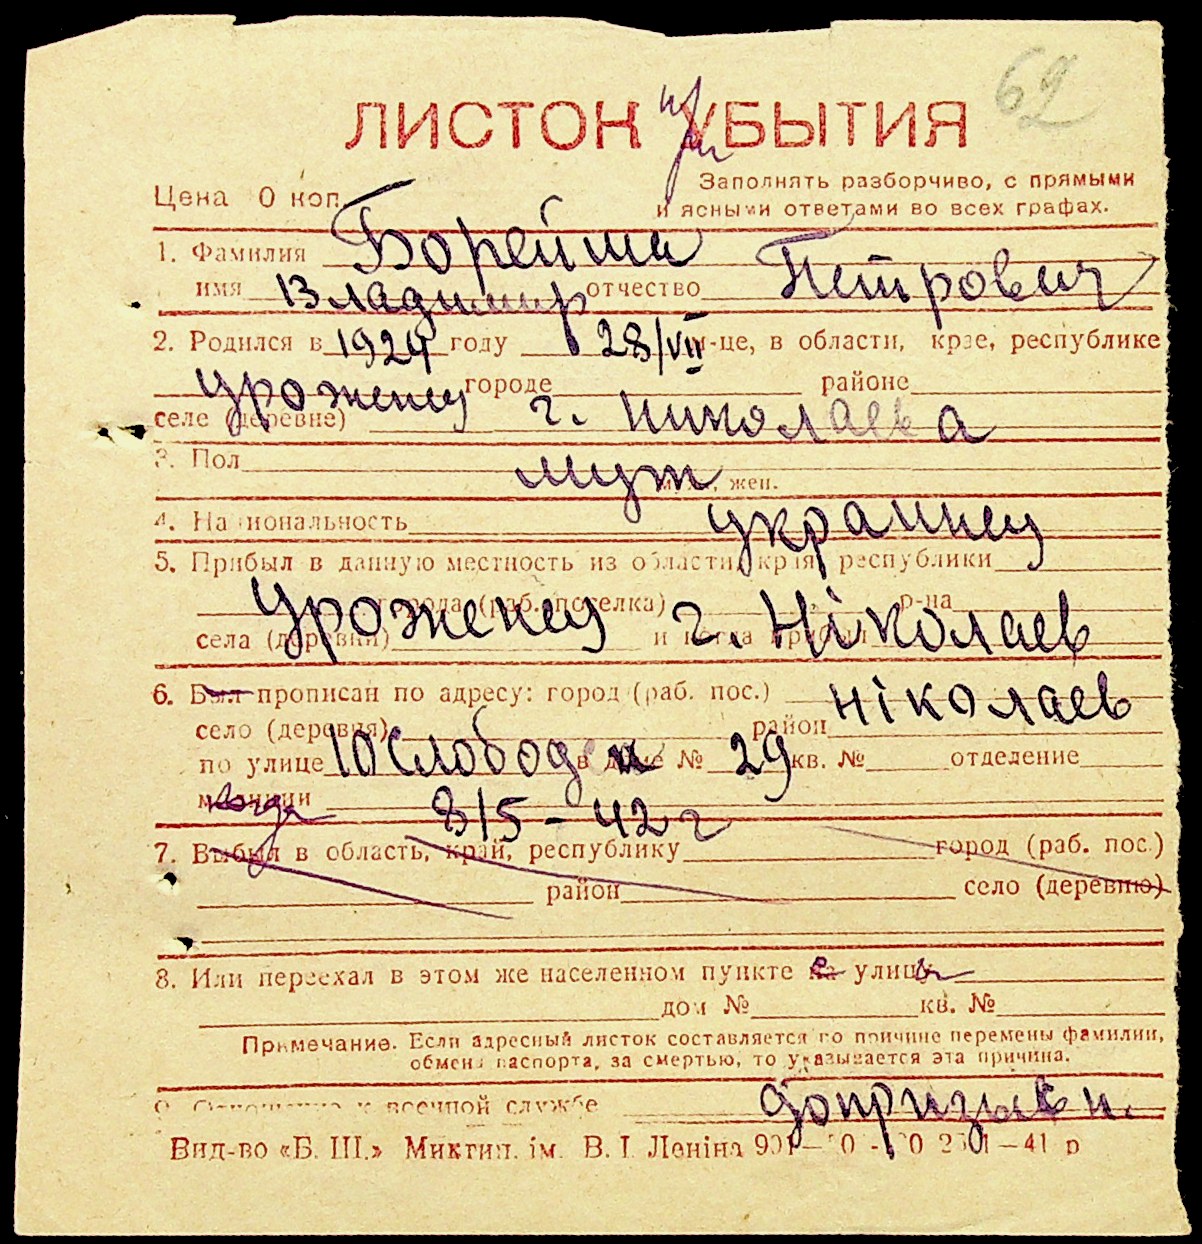 62
ЛИСТОК при УБЫТИЯ
Цена 0 коп.
Заполнять разборчиво, с прямыми
и ясными ответами во всех графах.
1. Фамилия Борейша
имя Владимир отчество Петрович
2. Родился в 1924 году 28/VII м-це, в области, крае, республике
уроженец городе районе
селе (деревне) г. Николаева
3. Пол муж муж., жен.
4. Национальность украинец
5. Прибыл в данную местность из области, края, республики
города (раб. поселка) р-на
уроженец г. Ніколаев
села (деревни) и когда прибыл
6. Был прописан по адресу: город (раб. пос.) Ніколаев
село (деревня) район
по улице 10 Слободск в доме № 29 кв. № отделение
милиции когда 8/5-42 г
7. Выбыл в область, край, республику город (раб. пос.)
район село (деревню)
8. Или переехал в этом же населенном пункте с на улицы
дом № кв. №
Примечание. Если адресный листок составляется по причине перемены фамилии,
обмена паспорта, за смертью, то указывается эта причина.
9. Отношение к военной службе допризывн.
Вид-во «Б. Ш.» Миктип. ім. В. І. Леніна —41 р